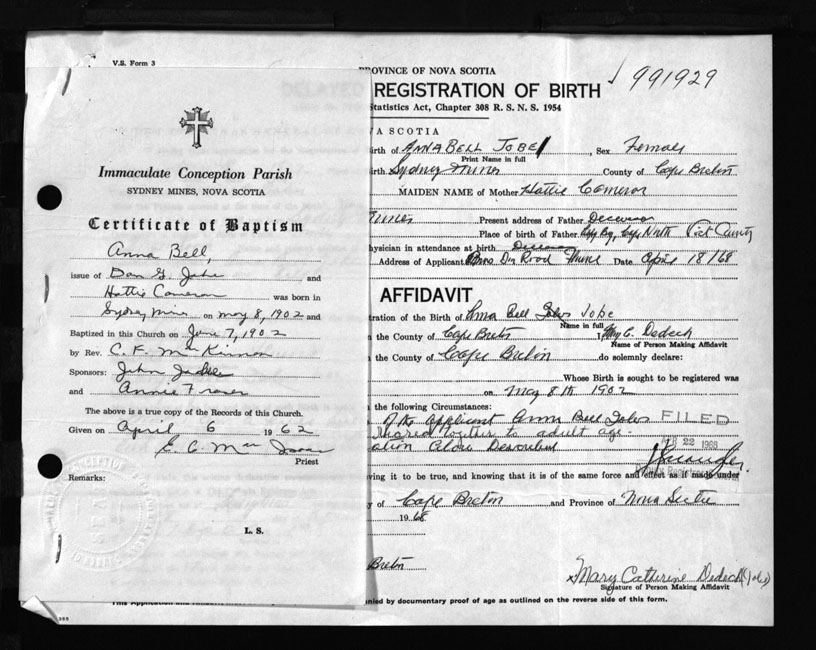 V.S. Form 3
Immaculate Conception Parish
SYDNEY MINES, NOVA SCOTIA
Certificate of Baptism
Anna Bell,
issue of Dan G. Jobe and
Hattie Cameron was born in
Sydney Mines on May 8, 1902 and
Baptized in this Church on June 7, 1902
by Rev. C. F. McKinnon
Sponsors: John
and Annie Fraser
The above is a true copy of the Records of this Church.
Given on April 6 1962
Priest
Remarks:
L. S.
PROVINCE OF NOVA SCOTIA
991929
REGISTRATION OF BIRTH
Statistics Act, Chapter 308 R. S. N. S. 1954
VA SCOTIA
irth of ANNA BELL JOBE, Sex Female
Print Name in full
irth Sydney Mines County of Cape Breton
MAIDEN NAME of Mother Hattie Cameron
Mines Present address of Father Deceased
Place of birth of Father Cape North Vict County
hysician in attendance at birth Deceased
Address of Applicant Mines Date April 18/68
AFFIDAVIT
tration of the Birth of Anna Bell Jobe
Name in full
n the County of Cape Breton I, Mary C. Dedeck
Name of Person Making Affidavit
n the County of Cape Breton do solemnly declare:
Whose Birth is sought to be registered was
on May 8th 1902
the following Circumstances:
of the applicant Anna Bell Jobe FILED
together to adult age. APR 22 1968
ation
ving it to be true, and knowing that it is of the same force and effect as if made under
y of Cape Breton and Province of Nova Scotia
1968
Breton
Mary Catherine Dedeck (Jobe)
Signature of Person Making Affidavit
nied by documentary proof of age as outlined on the reverse side of this form.